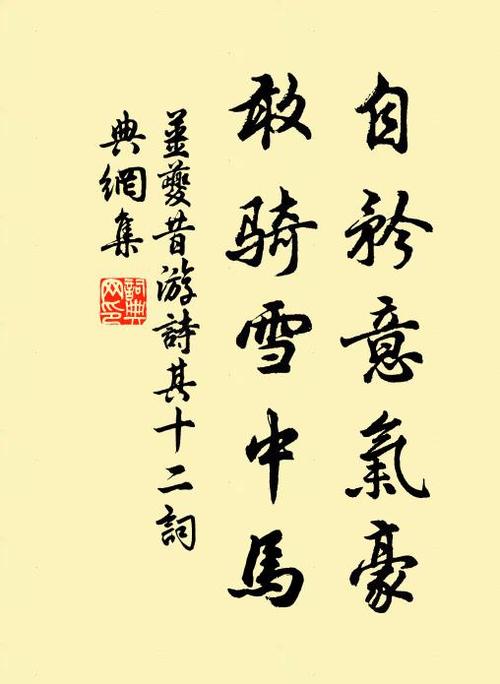 自矜意氣豪
敢騎雪中馬
姜夔昔游詩其十二詞
典網集
詞典
网印